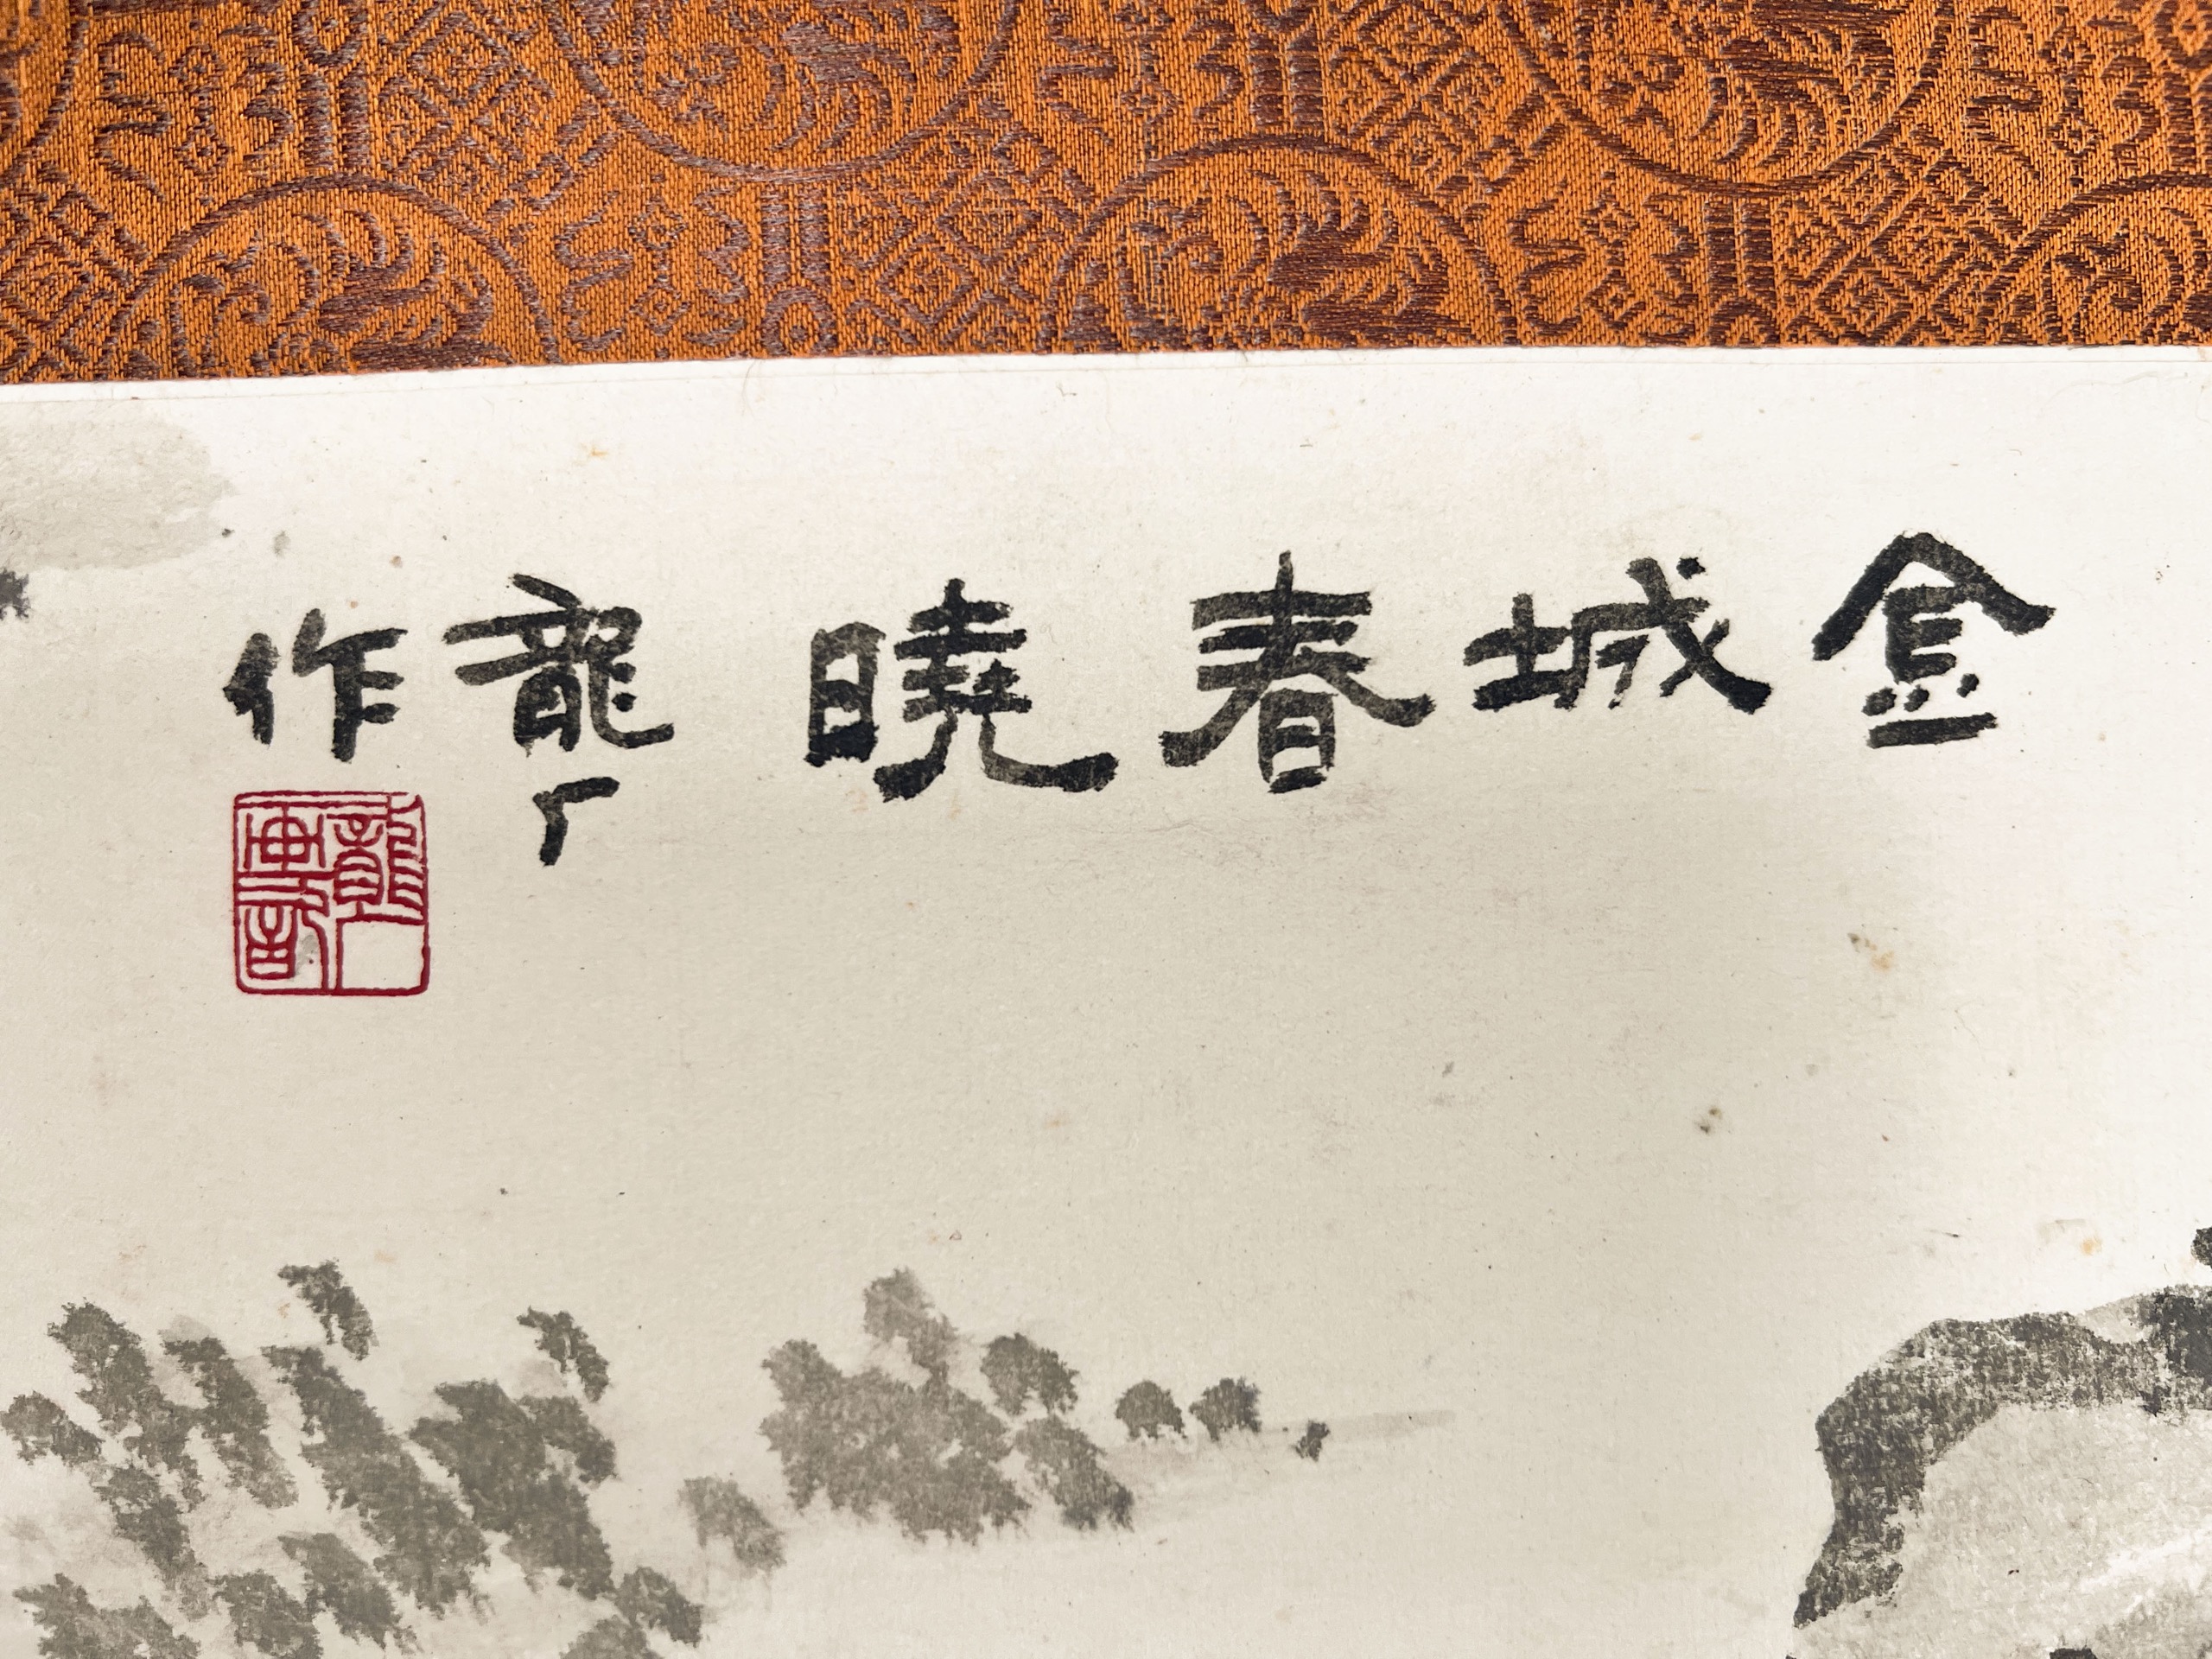 金城春曉 龍厂作
龍厂